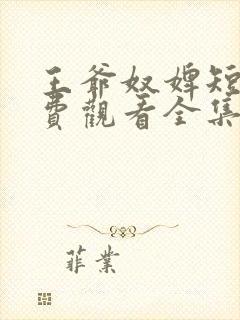 王爺奴婢短
費觀看全集
菲業